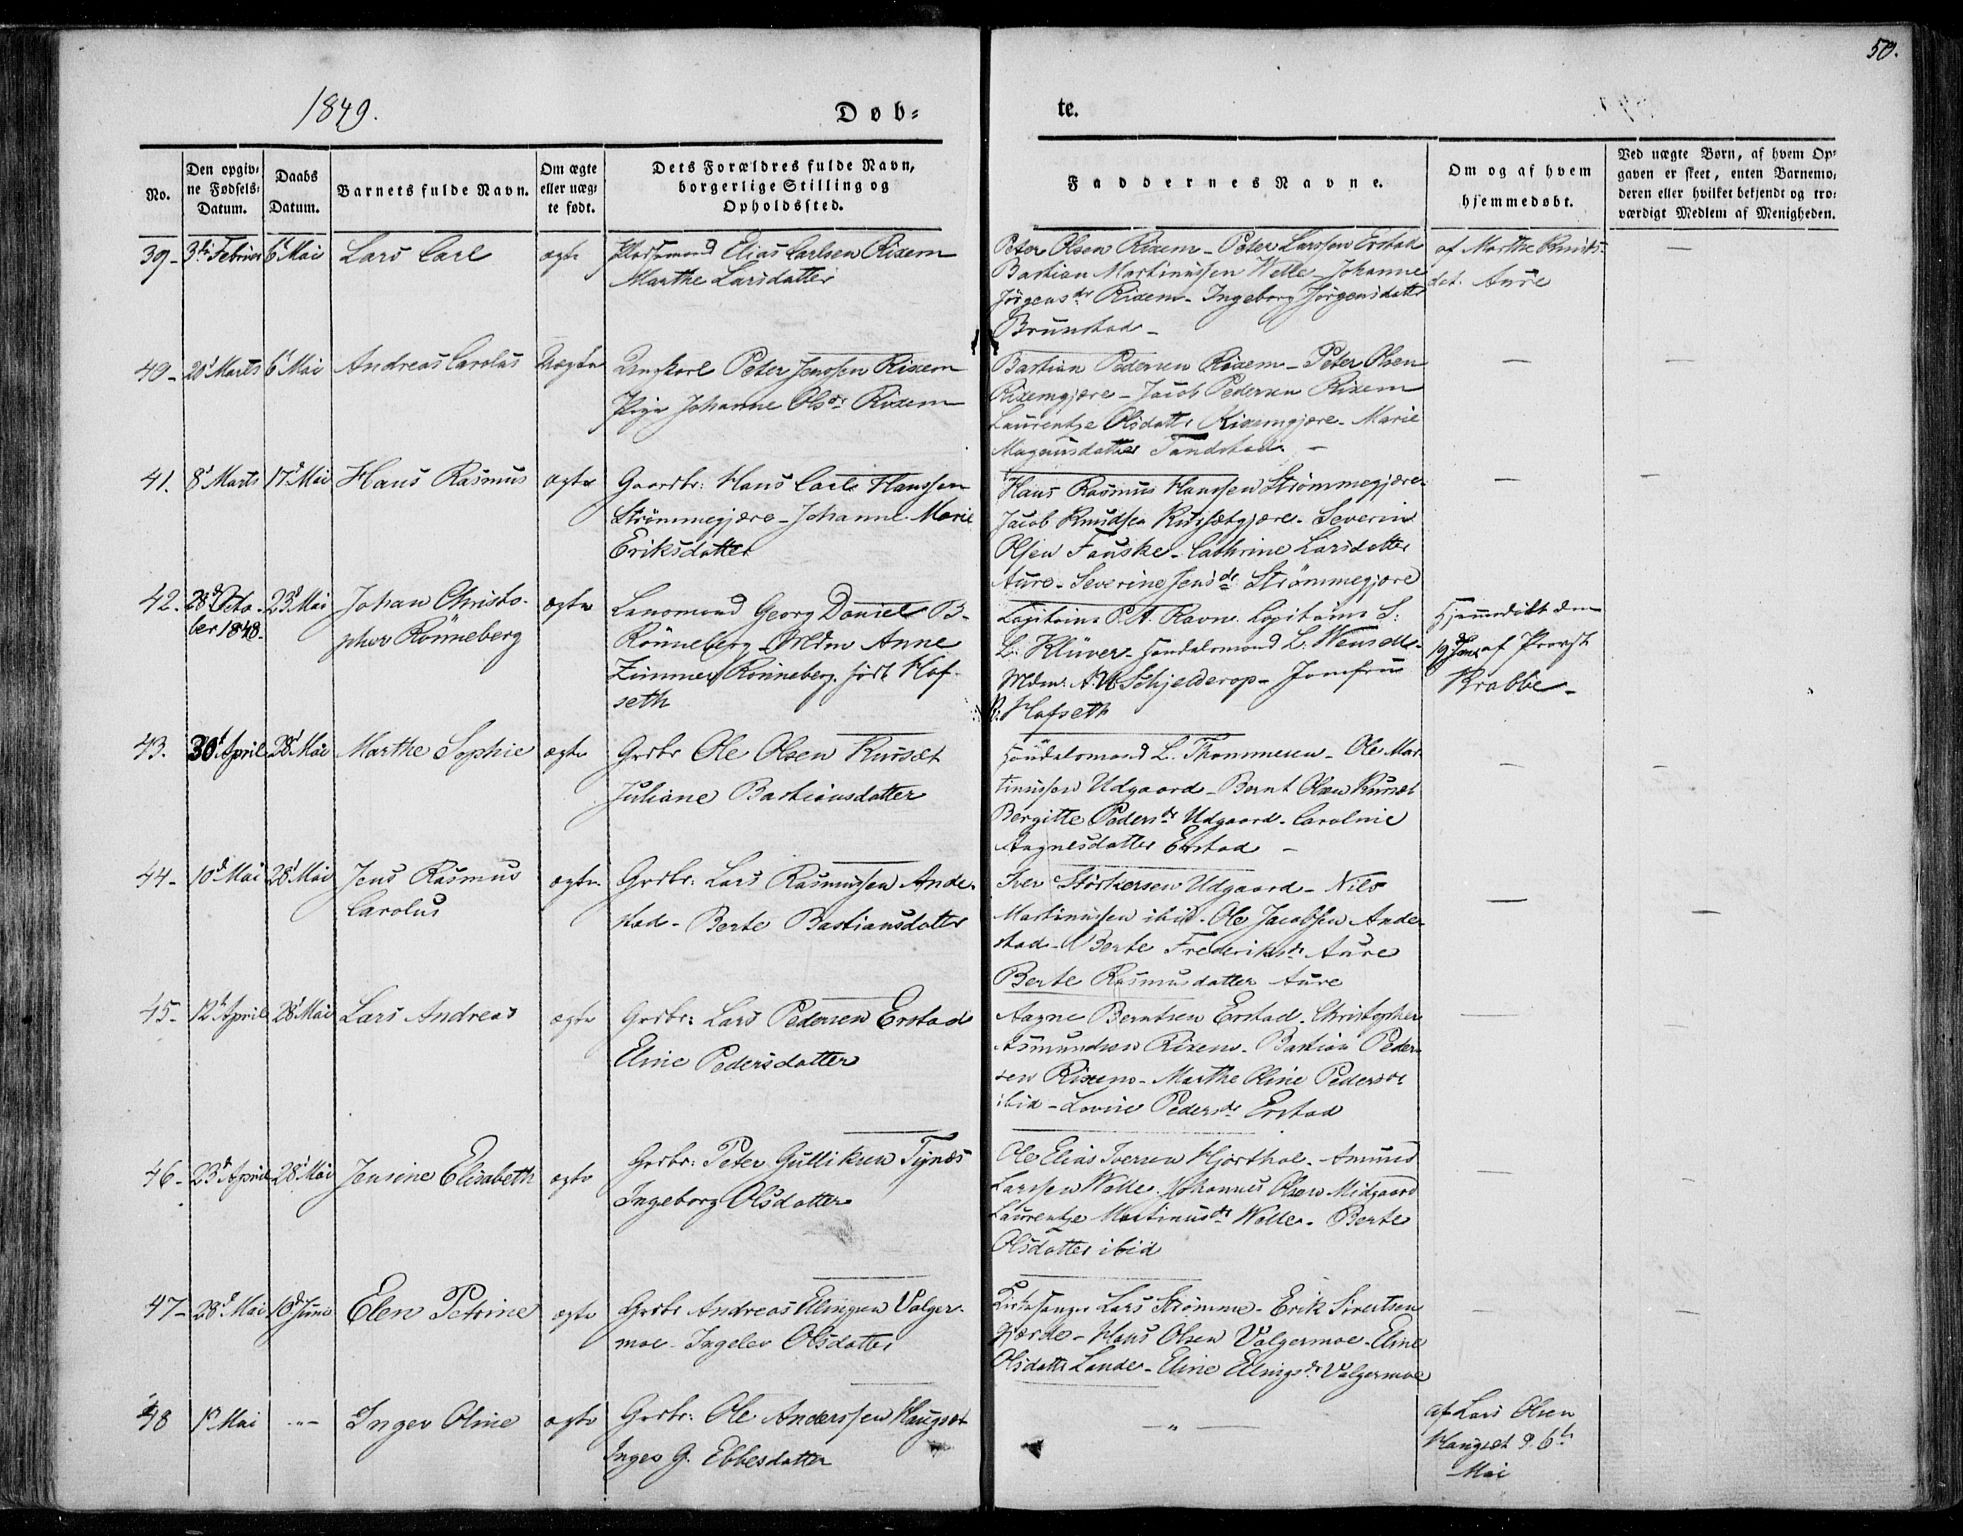 50.
1849.
Døb-
te.
No.
Den opgiv-
ne Fødsels-
Datum.
Daabs
Datum.
Barnets fulde Navn.
Om ægte
eller uæg-
te født.
Dets Forældres fulde Navn,
borgerlige Stilling og
Opholdssted.
Faddernes Navne.
Om og af hvem
hjemmedøbt.
Ved uægte Børn, af hvem Op-
gaven er skeet, enten Barnemo-
deren eller hvilket bekjendt og tro-
værdigt Medlem af Menigheden.
39- 3die Februar 6t Mai Lars Carl ægte Pladsmand Elias Carlsen Rixem
Marthe Larsdatter
Peter Olsen Rixem - Peter Larssen Erstad
Bastian Martinussen Welle Johanne
Jørgensdr Rixem - Ingeborg Jørgensdatter
Brunstad -
af Marthe Knuds-
dat. Aure
40- 20t Marts 6t Mai Andreas Carolus Uægte Ungkarl Peter Jenssen Rixem
Pige Johanne Olsdr Rixem
Bastian Pedersen Rixem - Peter Olsen
Rixemgjære - Jacob Pedersen Rixem
Laurentze Olsdattr Rixemgjære - Marie
Magnusdatter Tandstad. -
41. 8d Marts 17d Mai Hans Rasmus ægte Gaardbr: Hans Carl Hanssen
Strømmegjære - Johanne Marie
Eriksdatter
Hans Rasmus Hanssen Strømmegjære
Jacob Knudsen Kursætgjære - Severin
Olsen Fauske - Cathrine Larsdatter
Aure - Severine Jensdr Strømmegjære
42. 28d Octo- 23d Mai Johan Christo- ægte Lensmand Georg Daniel B-
ber 1848. pher Rönneberg Rönneberg - Mdm Anne
Zimmer Rönneberg, født Hof-
seth
Capitain P. A. Ravn Capitain S:
L: Klüver - Handelsmand L: Wensell-
Mdm: A. Schjelderop - Jomfru
R: Hofseth
Hjemmedøbt den
19d af Provst
Krabbe -
43. 30t April 28t Mai Marthe Sophie ægte Grdbr Ole Olsen Kursæt
Juliane Bastiansdatter
Handelsmand L. Thommesen - Ole Mar-
tinussen Udgaard - Bernt Olsen Kursæt
Bergitte Pedersdr Udgaard - Caroline
Aagnesdatter Erstad -
44- 10d Mai 28t Mai Jens Rasmus ægte Grdbr: Lars Rasmussen Ande-
Carolus stad - Berte Bastiansdatter
Iver Størkersen Udgaard - Nils
Martinussen ibid - Ole Jacobsen Ande-
stad - Berte Frederiksdr Aure
Berte Rasmusdatter Aure
45- 12t April 28t Mai Lars Andreas ægte Grdbr: Lars Pedersen Erstad
Eline Pedersdatter
Aagne Berntsen Erstad - Christopher
Asmundsen Rixem - Bastian Peder-
sen Rixem - Marthe Oline Pedersdr
ibid - Lovise Pedersdr Erstad
46- 23d April 28t Mai Jensine Elisabeth ægte Grdbr: Peter Gulliksen Tynæs
Ingeborg Olsdatter
Ole Elias Iversen Hjorthol - Amund
Larssen Welle - Johannes Olsen Midgaard
Laurentze Martinusdr Welle - Berte
Olsdatter ibid
47- 28d Mai 10d Juni Elen Petrine ægte Grdbr Andreas Ellingsen Valger-
moe - Ingelev Olsdatter
Kirkesanger Lars Strømme - Erik Sivertsen
Gjærde - Hans Olsen Valgermoe - Eline
Olsdattr Lande - Eline Ellingsdr Valgermoe
48 1d Mai -"- Inger Oline ægte Grdbr: Ole Anderssen Haugset
Inger G. Ebbesdatter
-"-
af Lars Olsen
Haugset d. 6t
Mai